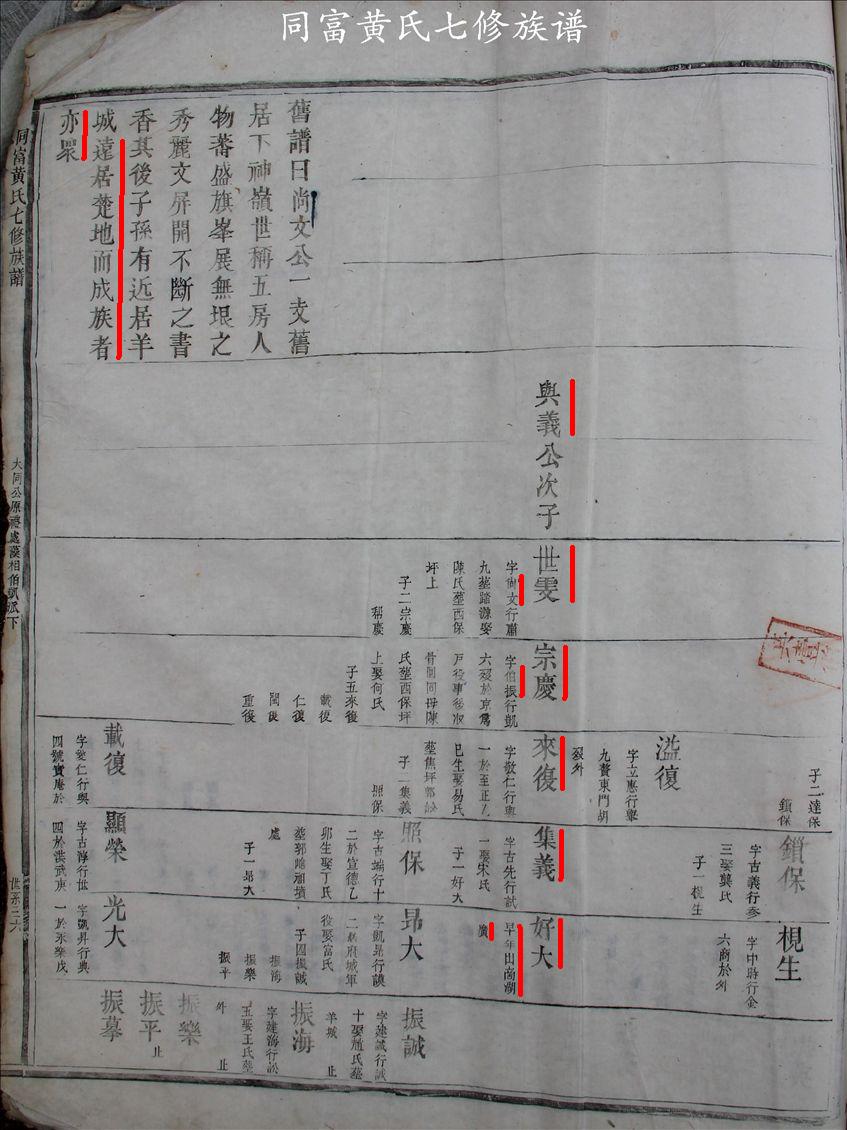 同富黄氏七修族谱
舊譜曰尚文公一支舊
居下神嶺世稱五房人
物蕃盛旗峯展無垠之
秀麗文屏開不斷之書
香其後子孫有近居羊
城遠居楚地而成族者
亦眾
與義公次子
世雯
字尚文行肅
九葬踏源娶
陳氏葬西保
坪上
子二宗慶
宗慶
字伯振行凱
上娶何氏
氏葬西保坪
子五來復
載復
仁復
閏復
重復
子二達保
鎖保
溢復
字立惠行舉
九贅東門胡
來復
歿外
字敬仁行輿
巳生娶易氏
子二集義
照保
載復
字愛仁行與
鎖保
字古義行參
三娶龔氏
子一梘生
集義
字古先行試
一娶宋氏
子一好大
照保
字古端行十
二於宣德乙
卯生娶丁氏
葬郭崎祖墳
處
子一昂大
顯榮
字古淳行世
四於洪武庚
梘生
字中時行金
六商於外
好大
早年出商湖
廣
昂大
役娶富氏
子四振誠
振海
振樂
振平
光大
字凱昇行典
一於永樂戊
振誠
字建誠行誠
十娶趙氏葬
羊城 止
振海
字建海行訟
五娶王氏葬
外 止
振樂
振平 止
振摹
同富黃氏七修族譜
大同公原禮處漢相伯凱派下
世系三六